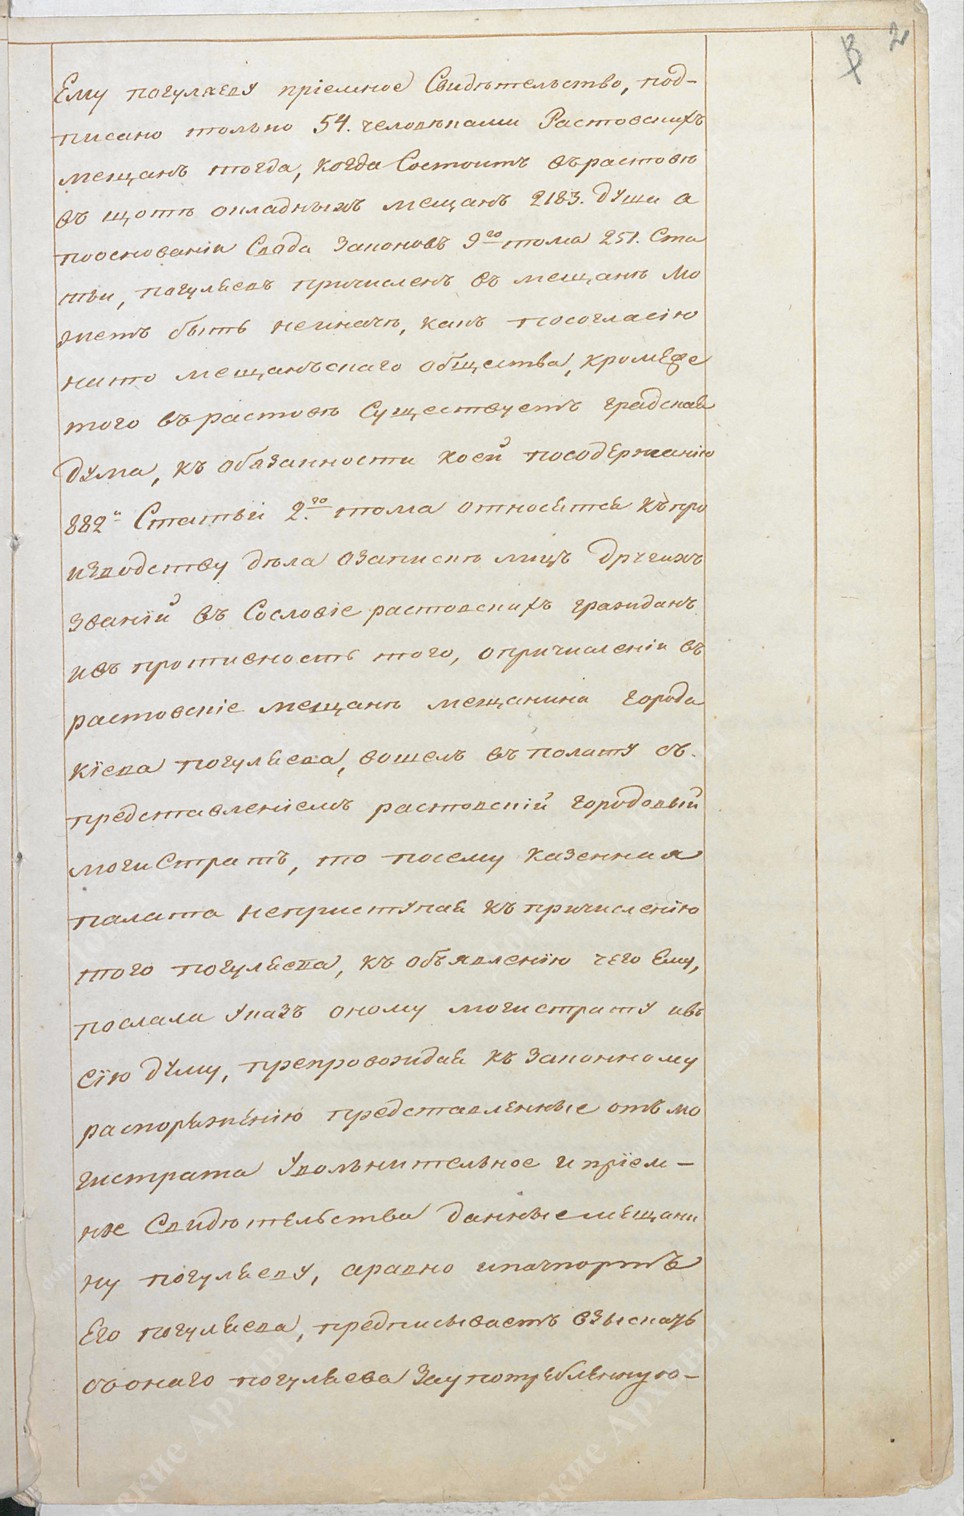 В 2
Ему погуляеву пріемное Свидѣтельство, под-
писано только 54. человѣками Растовскихъ
мещанъ тогда, когда Состоитъ въ растовѣ
въ щотѣ окладныхъ мещанъ 2183. души а
пооснованіи Свода Законовъ 9го тома 251. Ста
тьи, погуляевъ причисленъ въ мещанѣ мо
жетъ быть неиначе, какъ посогласію
на то мещанъскаго общества, кромеже
того въ растовѣ Существуетъ градская
дума, къ обязанности коей посодержанію
882й Статьи 2.го тома относится къ про
изводству дѣла озаписке лицъ другихъ
званій въ Сословіе растовскихъ гражданъ
ивъ противность того, опричисленіи въ
растовскіе мещанѣ мещанина города
Кіева погуляева, вошелъ въ полату съ.
представленіемъ растовскій городовый
могиСтратъ, то посему казенная
палата неприступая къ причисленію
того погуляева, къ объявленію чего Ему,
послала указъ оному могистрату ивъ
Сію думу, препровождая къ законному
распоряженію представленные отъ мо
гистрата увольнительное и пріем-
ное Свидѣтельства данные мещани
ну погуляеву, аравно ипачпортъ
Его погуляева, предписываетъ взыскать
съ онаго погуляева Заупотребленную-